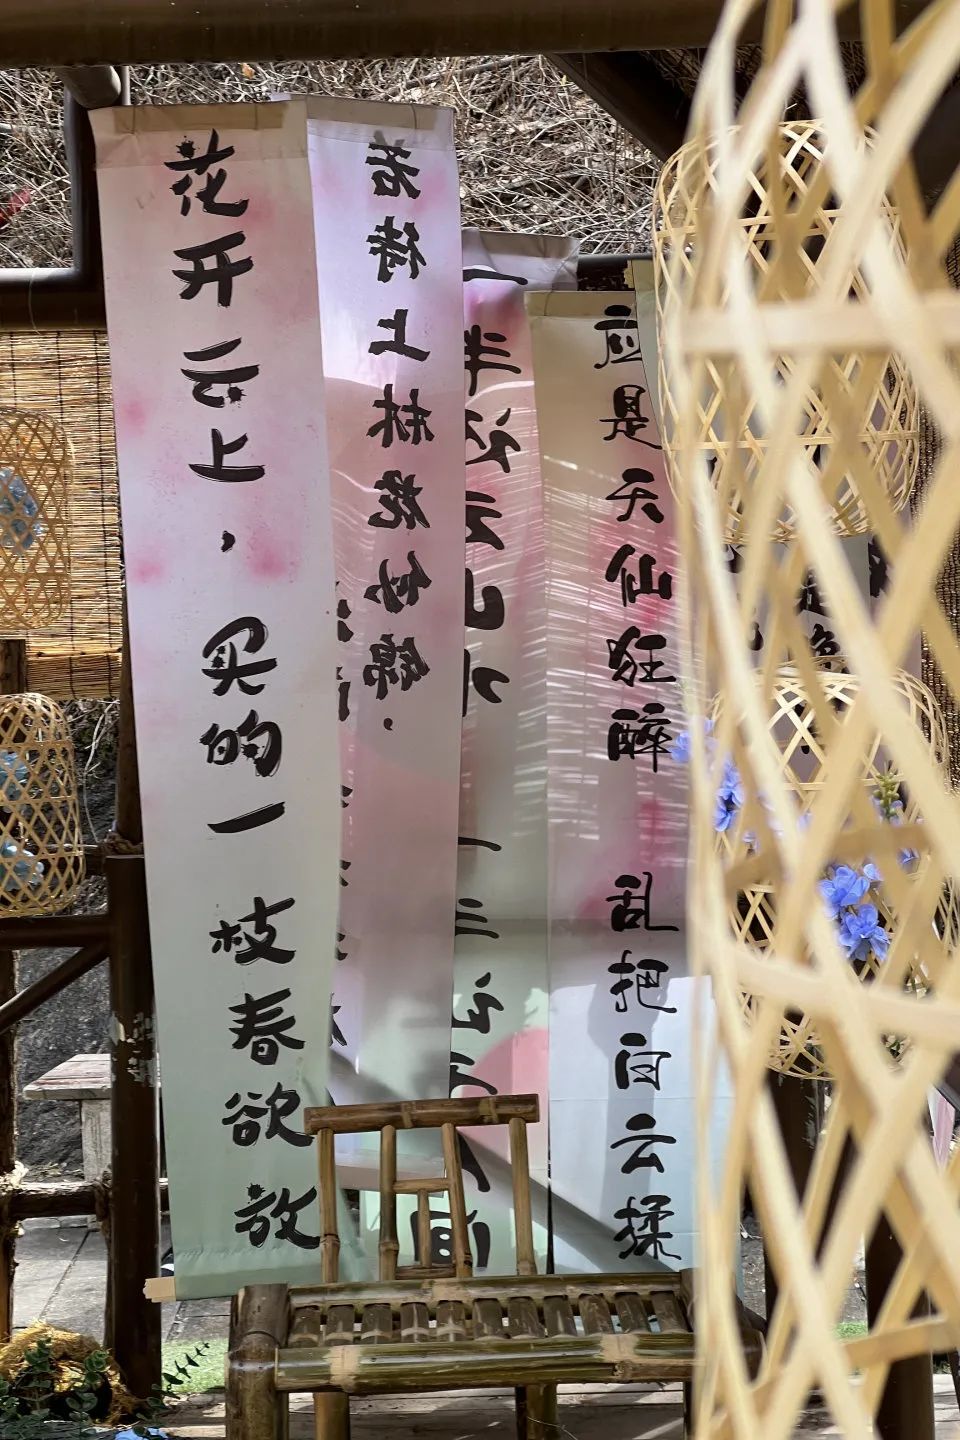 花开云上，买的一枝春欲放
若待上林花似锦，
一半云山水
间
应是天仙狂醉 乱把白云揉